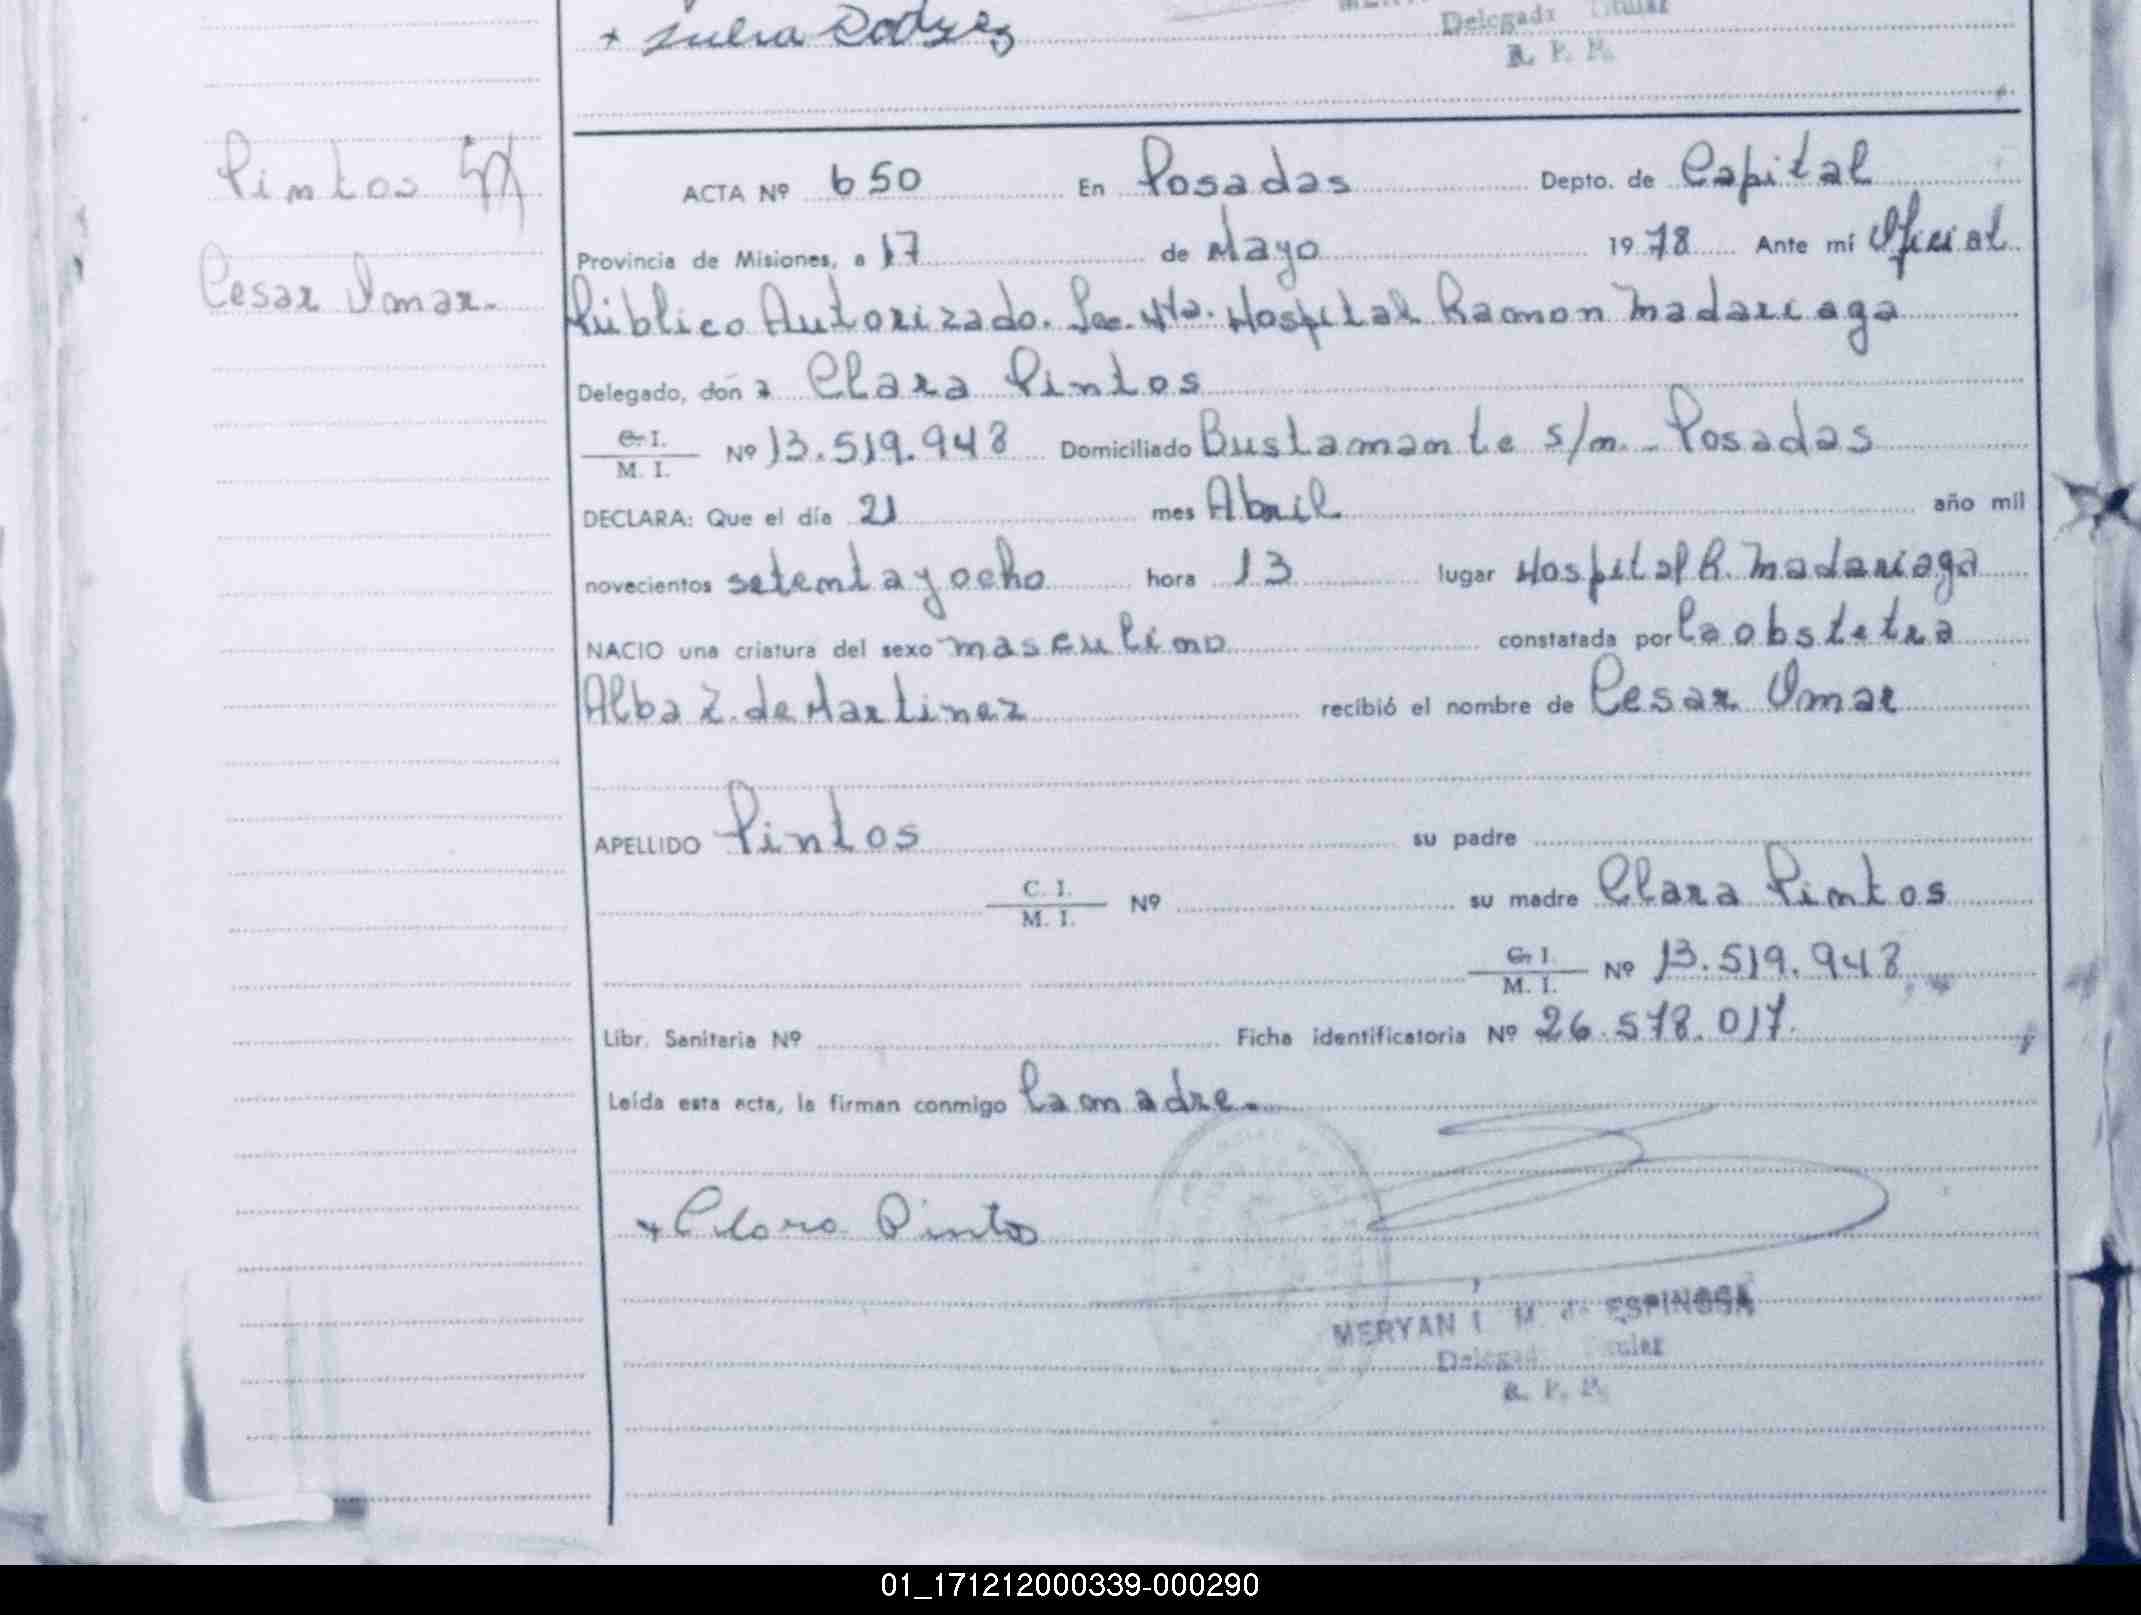 Delegada Titular
R. P. P.
Pintos
Cesar Omar.
ACTA Nº 650 En Posadas Depto. de Capital
Provincia de Misiones, a 17 de Mayo 1978 Ante mí Oficial
Público Autorizado. Sec. Hta. Hospital Ramon Madariaga
Delegado, don a Clara Pintos
C. I. / M. I. Nº 13.519.948 Domiciliado Bustamante s/n - Posadas
DECLARA: Que el día 21 mes Abril año mil
novecientos setenta y ocho hora 13 lugar Hospital R. Madariaga
NACIO una criatura del sexo masculino constatada por la obstetra
Alba Z. de Martinez recibió el nombre de Cesar Omar
APELLIDO Pintos su padre
C. I. / M. I. Nº su madre Clara Pintos
C. I. / M. I. Nº 13.519.948
Libr. Sanitaria Nº Ficha identificatoria Nº 26.578.017.
Leída esta acta, la firman conmigo la madre.
Clara Pinto
MERYAN I. M. de ESPINOSA
Delegada Titular
R. P. P.
01_171212000339-000290